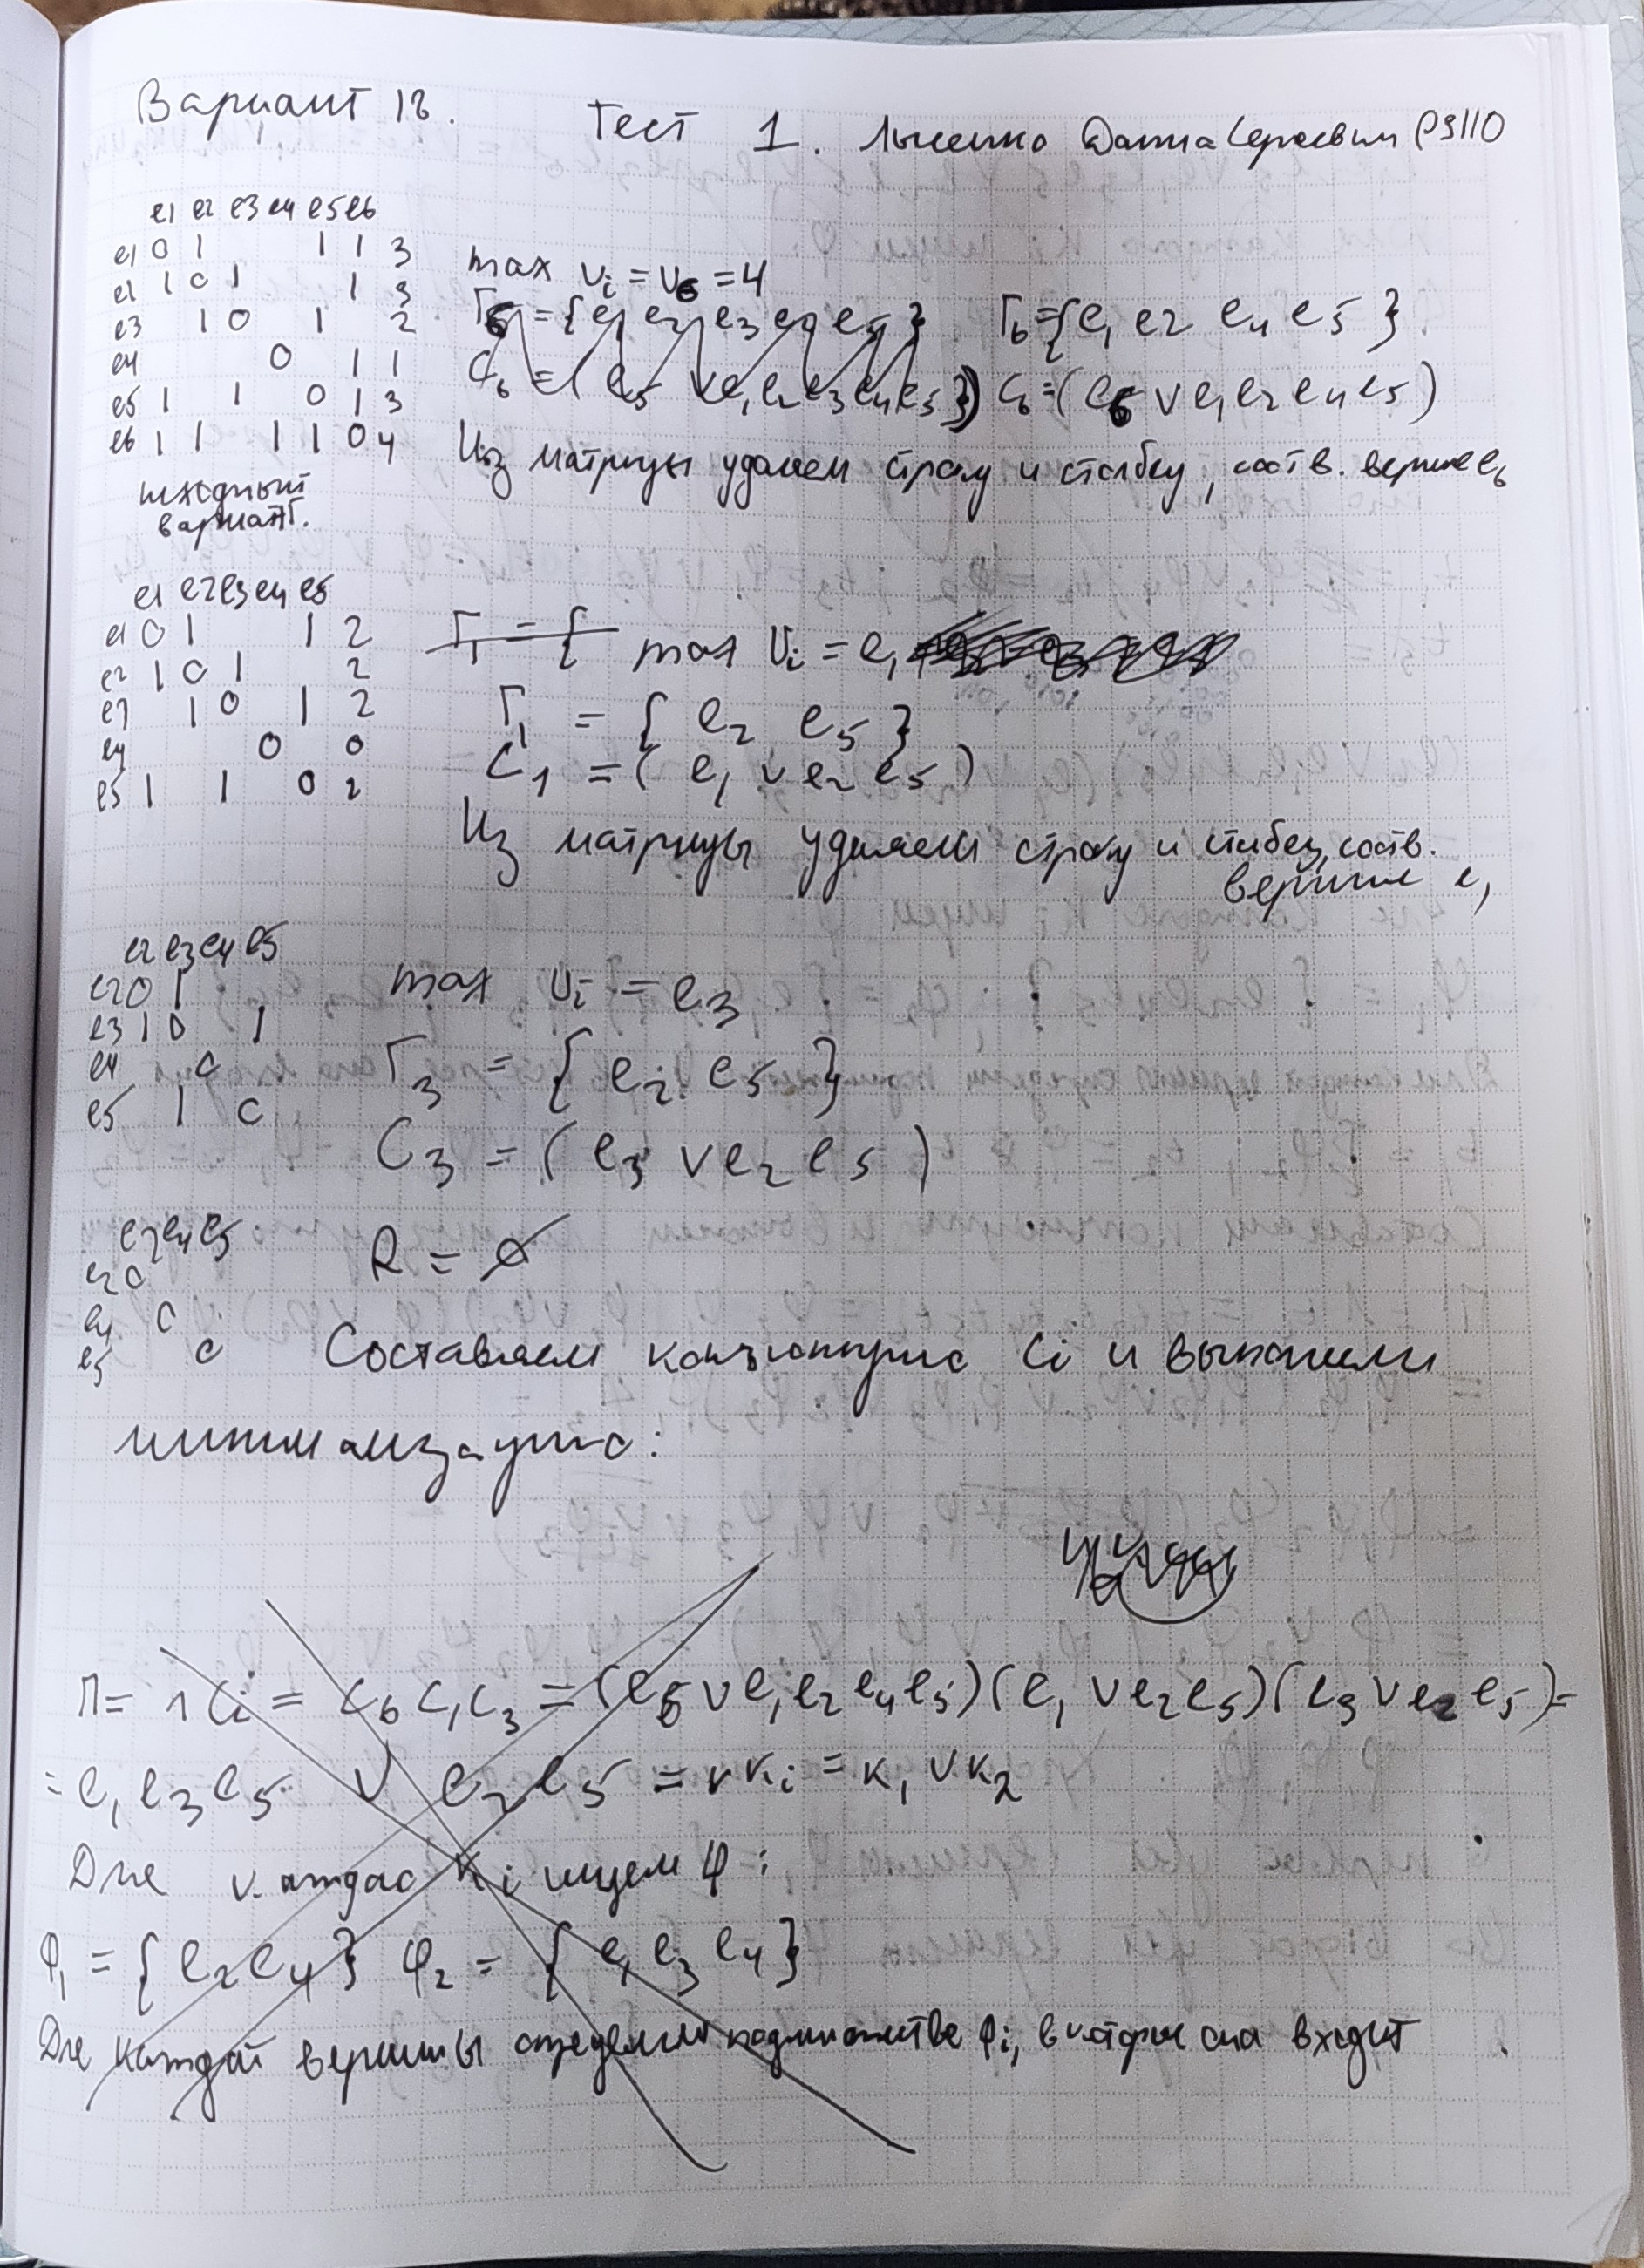 Вариант 18.
Тест 1. Лысенко Данила Сергеевич P3110
e1 e2 e3 e4 e5 e6
e1 0 1 1 1 3
e2 1 0 1 1 3
e3 1 0 1 2
e4 0 1 1
e5 1 1 0 1 3
e6 1 1 1 1 0 4
исходный
вариант.
max νi = ν6 = 4
Г6 = {e1 e2 e3 e4 e5} Г6 = {e1 e2 e4 e5}
C6 = (e5 ∨ e1e2e3e4e5) C6 = (e6 ∨ e1e2e4e5)
Из матрицы удаляем строку и столбец, соотв. вершине e6
e1 e2 e3 e4 e5
e1 0 1 1 2
e2 1 0 1 2
e3 1 0 1 2
e4 0 0
e5 1 1 0 2
Г1 = { max νi = e1
Г1 = {e2 e5}
C1 = (e1 ∨ e2 e5)
Из матрицы удаляем строку и столбец, соотв.
вершине e1
e2 e3 e4 e5
e2 0 1
e3 1 0 1
e4 0
e5 1 0
max νi = e3
Г3 = {e2 e5}
C3 = (e3 ∨ e2 e5)
e2 e4 e5
e2 0
e4 0
e5 0
R = ∅
Составляем конъюнкцию Ci и выполним
минимизацию:
П = ∧Ci = C6C1C3 = (e6 ∨ e1e2e4e5)(e1 ∨ e2e5)(e3 ∨ e2e5) =
= e1e3e5 ∨ e2e5 = ∨Ki = K1 ∨ K2
Для каждого Ki ищем φ:
φ1 = {e2e4} φ2 = {e1e3e4}
Для каждой вершины определим подмножества φi, в которые она входит